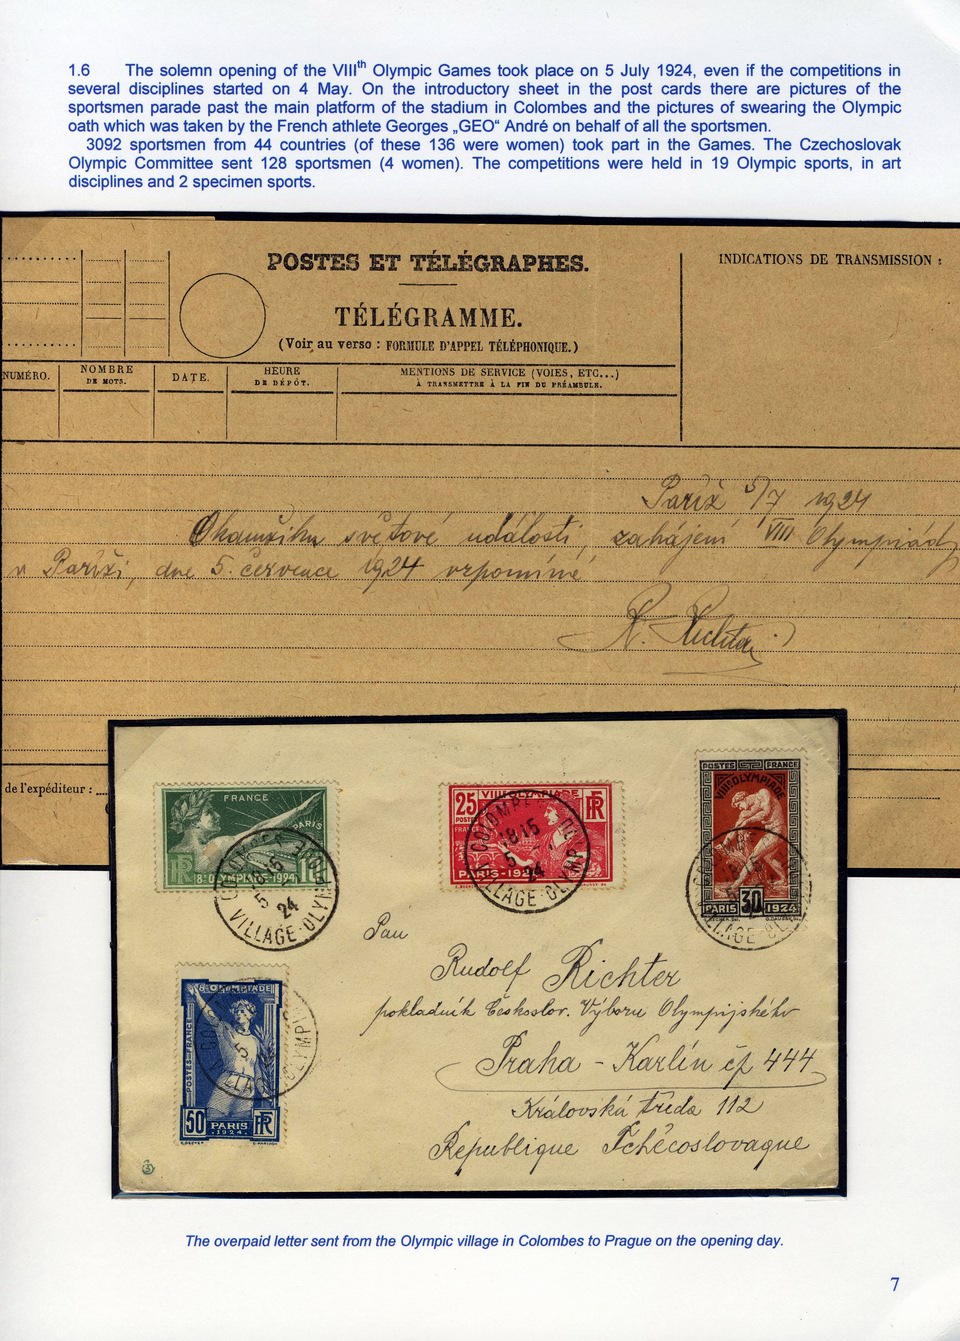 1.6 The solemn opening of the VIIIth Olympic Games took place on 5 July 1924, even if the competitions in
several disciplines started on 4 May. On the introductory sheet in the post cards there are pictures of the
sportsmen parade past the main platform of the stadium in Colombes and the pictures of swearing the Olympic
oath which was taken by the French athlete Georges „GEO“ André on behalf of all the sportsmen.
3092 sportsmen from 44 countries (of these 136 were women) took part in the Games. The Czechoslovak
Olympic Committee sent 128 sportsmen (4 women). The competitions were held in 19 Olympic sports, in art
disciplines and 2 specimen sports.
POSTES ET TÉLÉGRAPHES.
INDICATIONS DE TRANSMISSION :
TÉLÉGRAMME.
(Voir au verso : FORMULE D'APPEL TÉLÉPHONIQUE.)
NUMÉRO.
NOMBRE
DE MOTS.
DATE.
HEURE
DE DÉPÔT.
MENTIONS DE SERVICE (VOIES, ETC...)
À TRANSMETTRE À LA FIN DU PRÉAMBULE.
Paříž 5/7 1924
Okamžiku světové události, zahájení VIII Olympiády
v Paříži, dne 5. července 1924 vzpomíné
R. Richter
de l'expéditeur :
FRANCE
PARIS
RF
8e OLYMPIADE 1924
10
COLOMBES
5
24
VILLAGE OLYMPIQUE
25
VIIIe OLYMPIADE
POSTES
FRANCE
RF
PARIS-1924
COLOMBES
18 15
5
24
VILLAGE-OLYMP
POSTES FRANCE
VIIIe OLYMPIADE
PARIS 30 1924
8e OLYMPIADE
POSTES-FRANCE
50
PARIS
1924
RF
5
VILLAGE OLYMPI
Pan
Rudolf Richter
pokladník Českoslov. Výboru Olympijského
Praha – Karlín čp 444
Královská třída 112
Republique Tchécoslovaque
The overpaid letter sent from the Olympic village in Colombes to Prague on the opening day.
7